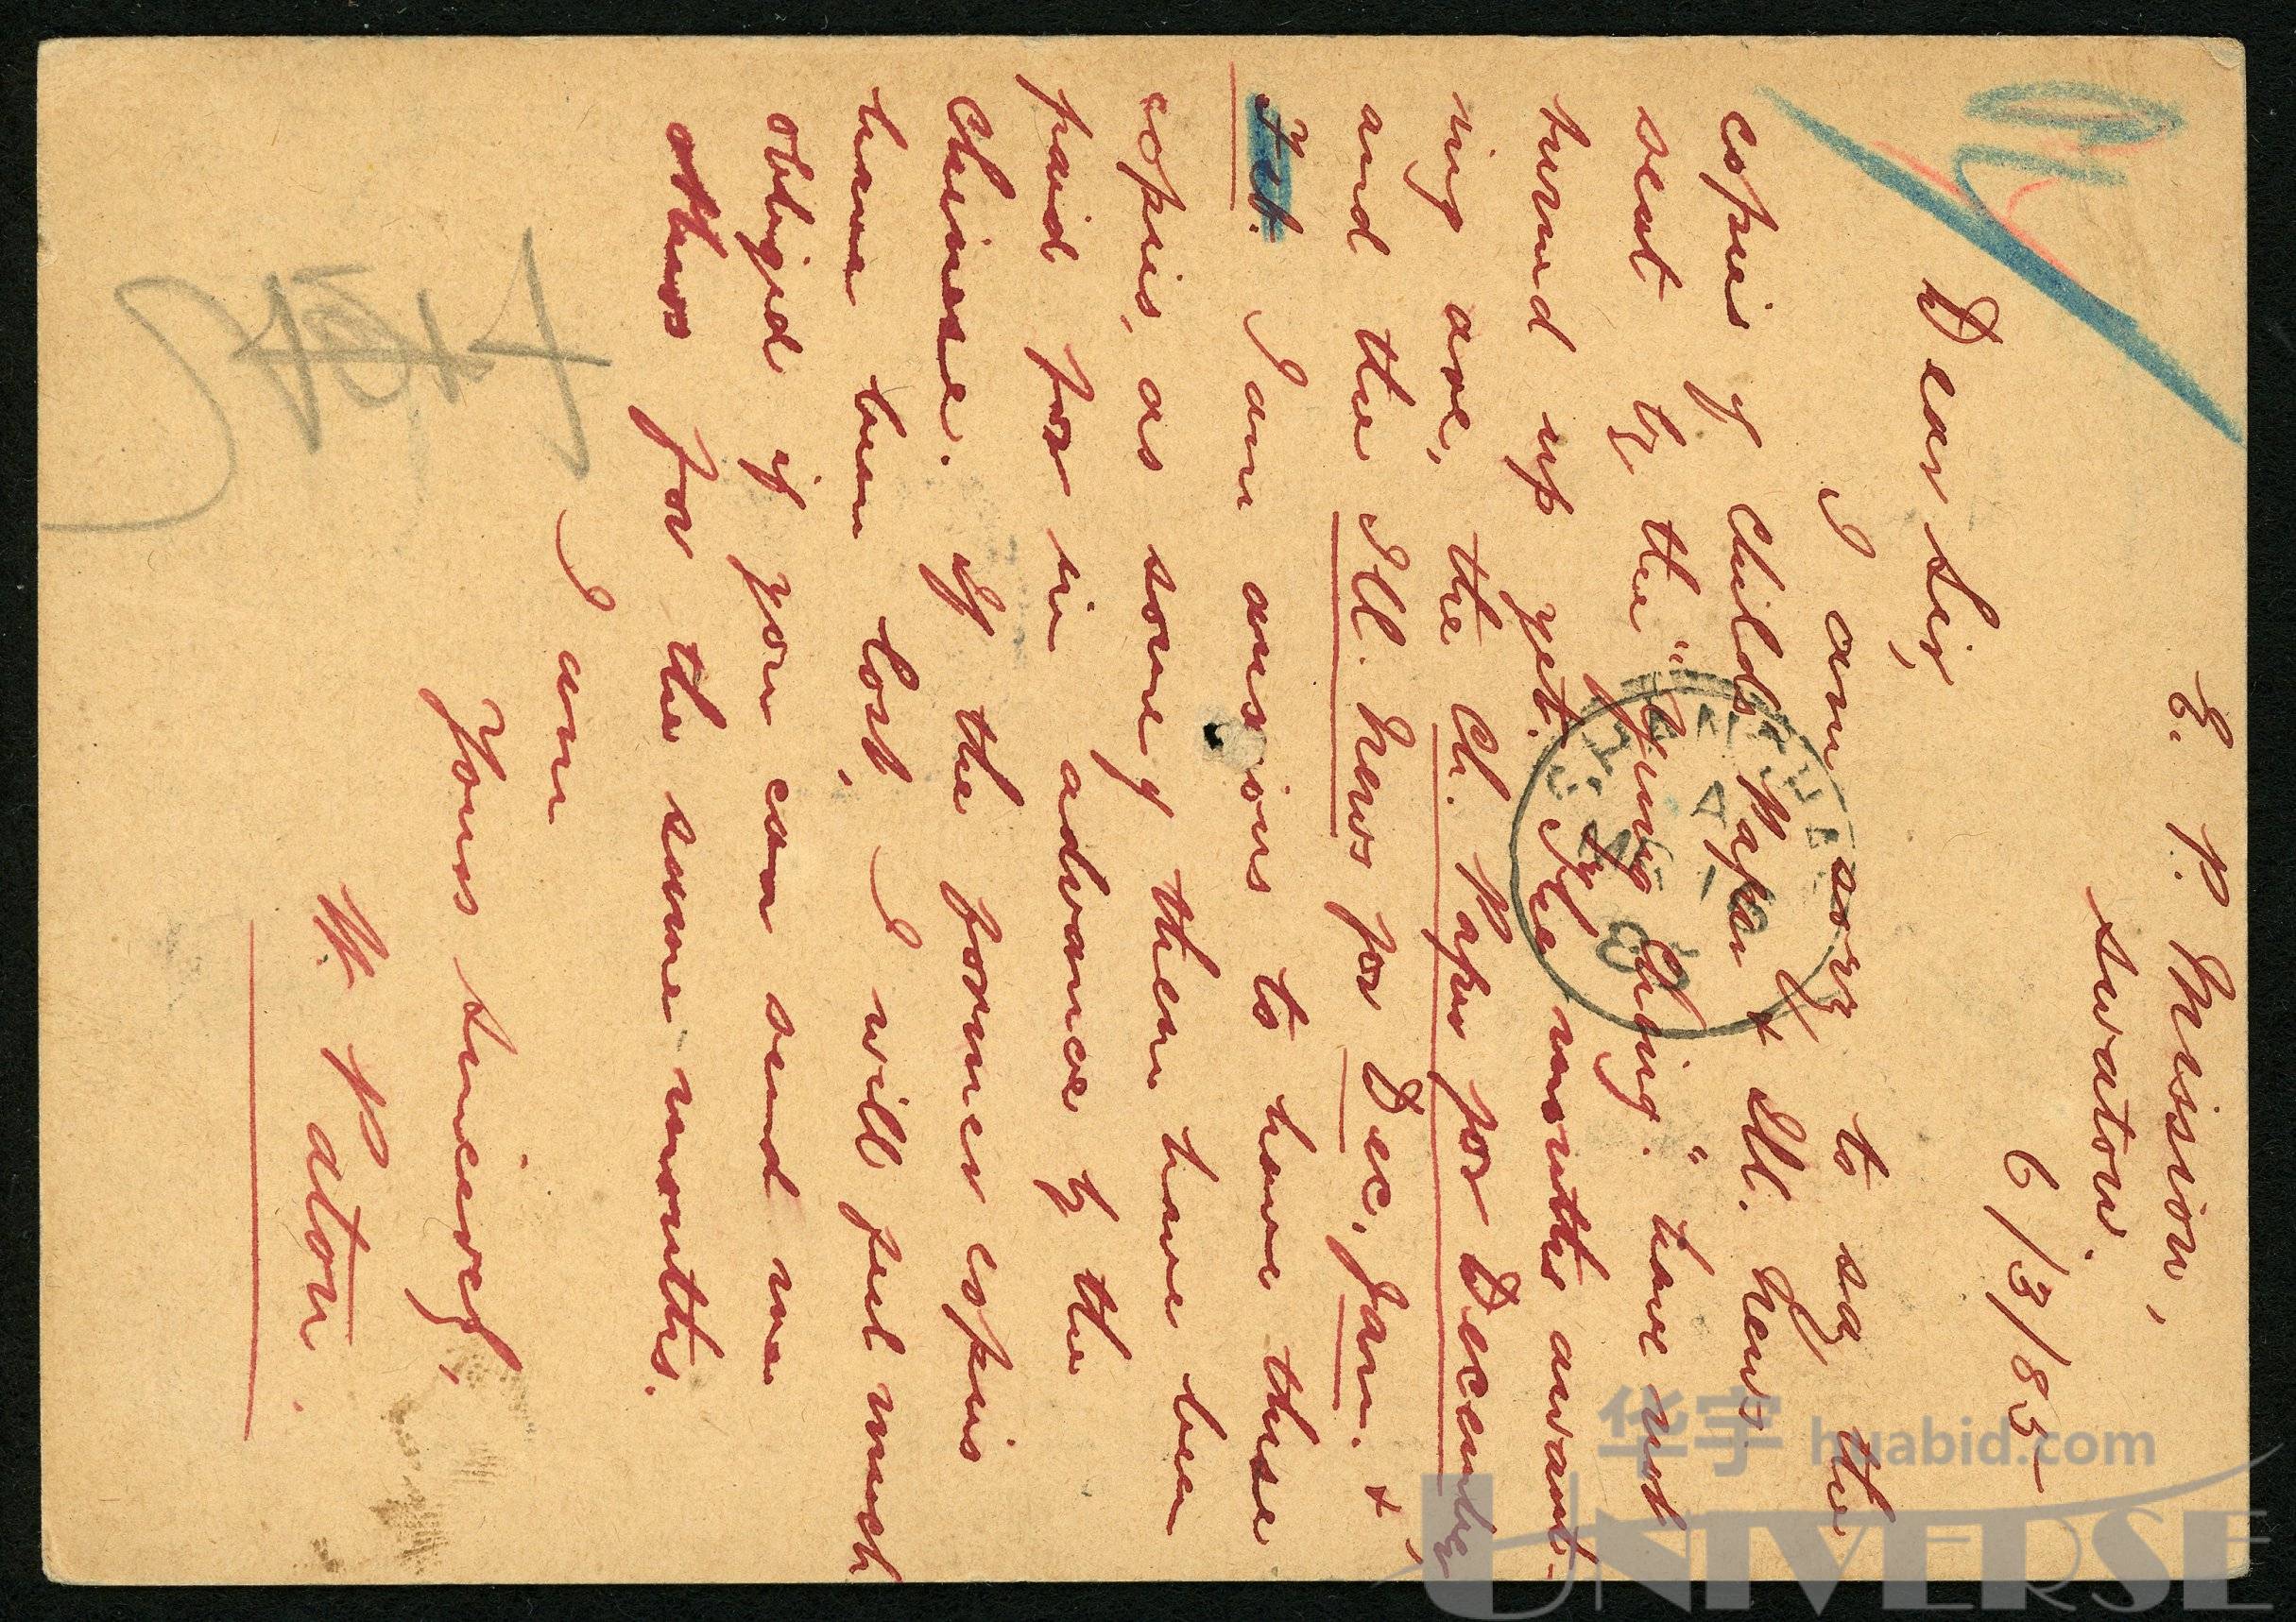 E. P. Mission,
Swatow.
6/3/85
Dear Sir,
I am sorry to say the
copies of Child's Paper & Ill. News
sent by the " Ching." have not
turned up yet. The months awant-
ing are, the Ch. Paper for December,
and the Ill. News for Dec, Jan. &
Feb. I am anxious to have these
copies, as some of them have been
paid for in advance by the
Chinese. If the former copies
have been lost, I will feel much
obliged if you can send me
others for the same months.
I am
Yours sincerely,
W. Paton.
SHANGHAI
A
85
华宇 huabid.com
UNIVERSE